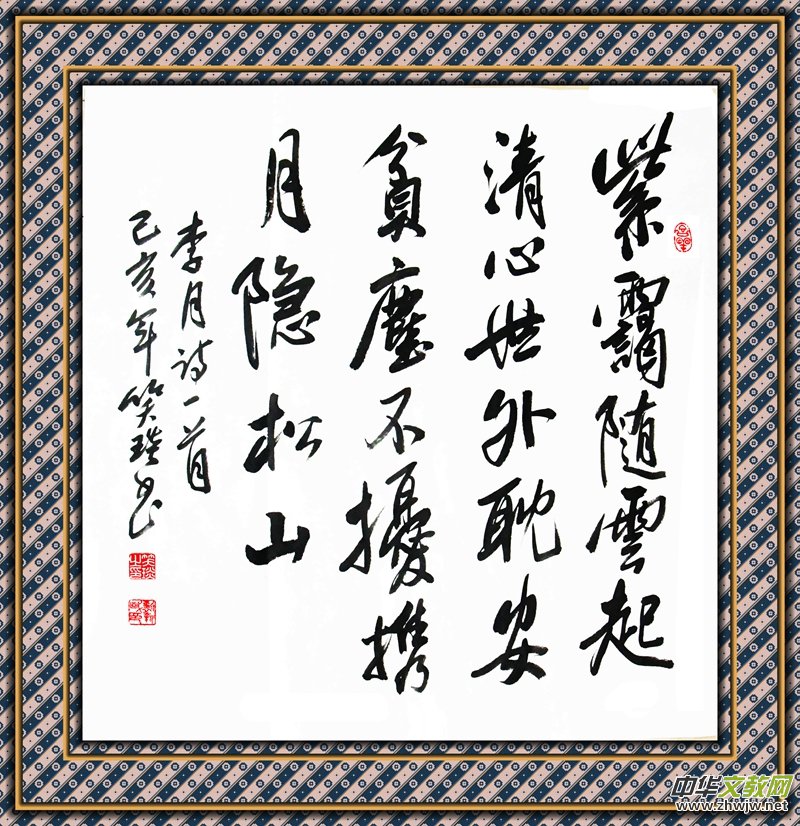 紫靄随雲起
清心世外耽安
貧塵不擾携
月隐松山
李月诗一首
己亥年笑书
中华文教网
www.zhwjw.net